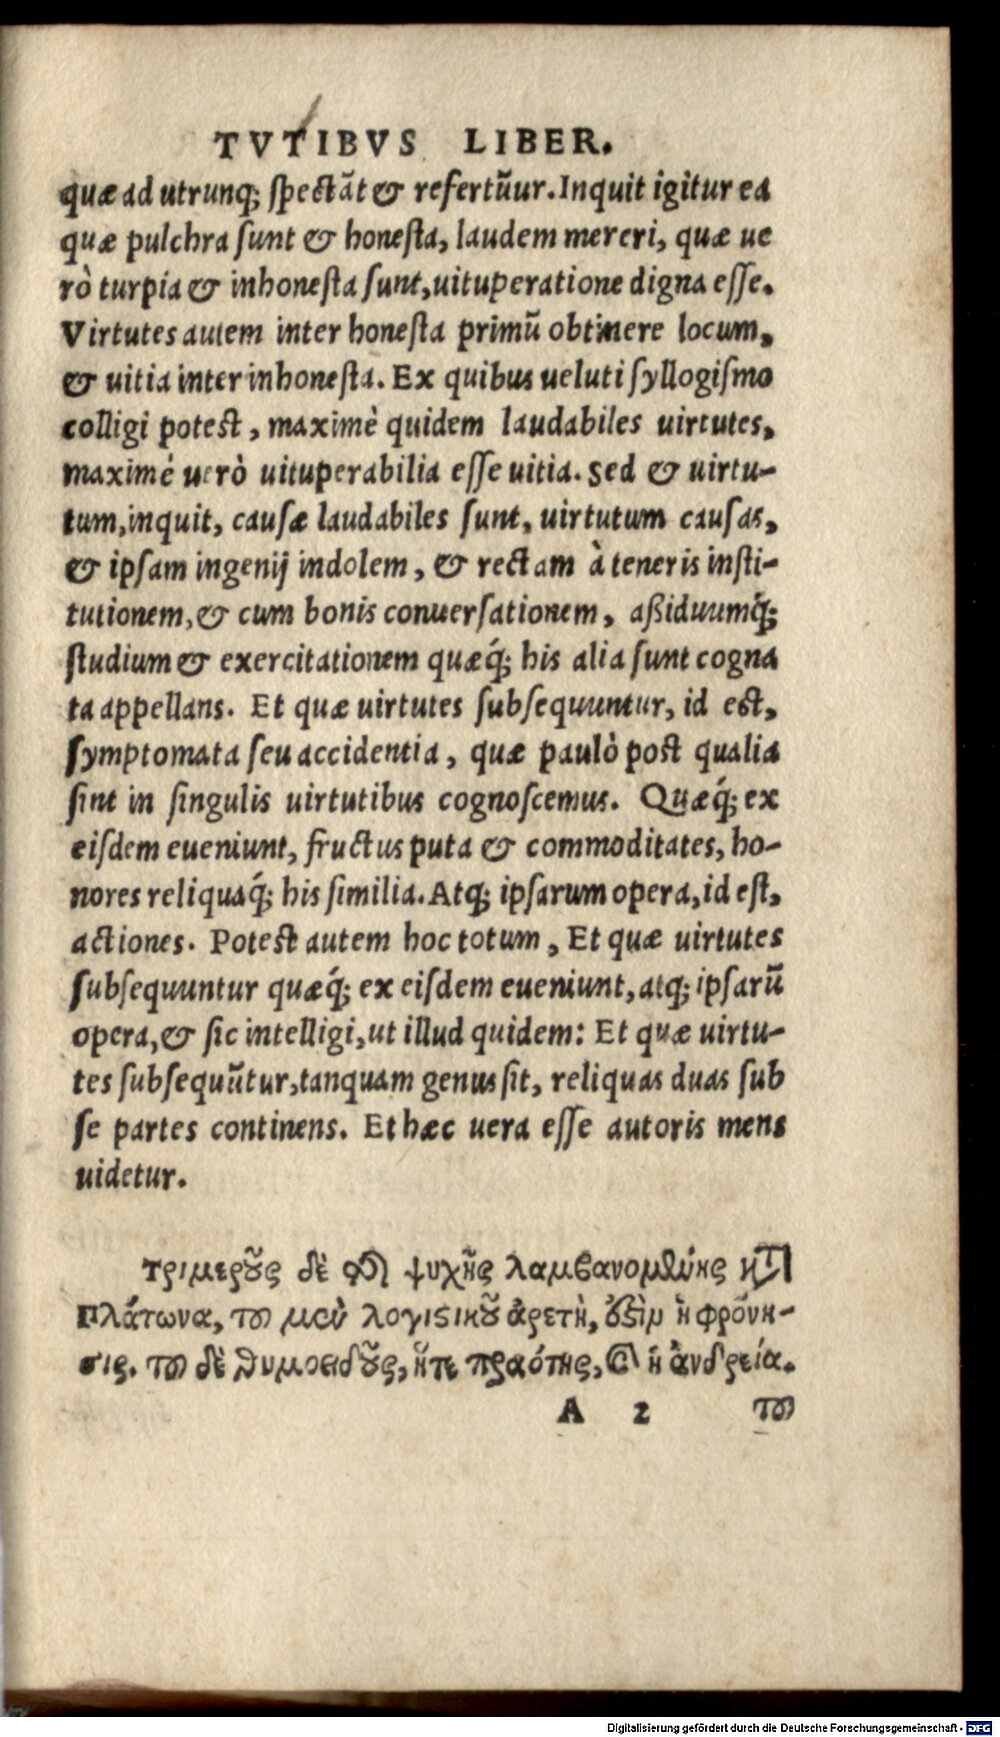 TVTIBVS LIBER.
quæ ad utrunq; spectãt & refertũur. Inquit igitur ea
quæ pulchra sunt & honesta, laudem mereri, quæ ue
rò turpia & inhonesta sunt, uituperatione digna esse.
Virtutes autem inter honesta primũ obtinere locum,
& uitia inter inhonesta. Ex quibus ueluti syllogismo
colligi potest, maximè quidem laudabiles uirtutes,
maximè uerò uituperabilia esse uitia. Sed & uirtu-
tum, inquit, causæ laudabiles sunt, uirtutum causas,
& ipsam ingenij indolem, & rectam à teneris insti-
tutionem, & cum bonis conuersationem, aßiduumq́;
studium & exercitationem quæq́; his alia sunt cogna
ta appellans. Et quæ uirtutes subsequuntur, id est,
symptomata seu accidentia, quæ paulò post qualia
sint in singulis uirtutibus cognoscemus. Quæq́; ex
eisdem eueniunt, fructus puta & commoditates, ho-
nores reliquaq́; his similia. Atq; ipsarum opera, id est,
actiones. Potest autem hoc totum, Et quæ uirtutes
subsequuntur quæq́; ex eisdem eueniunt, atq; ipsarũ
opera, & sic intelligi, ut illud quidem: Et quæ uirtu-
tes subsequũtur, tanquam genus sit, reliquas duas sub
se partes continens. Et hæc uera esse autoris mens
uidetur.
τριμεροῦς δὲ τῆς ψυχῆς λαμβανομένης κατὰ
Πλάτωνα, τοῦ μὲν λογιστικοῦ ἀρετὴ, ὅξὶν ἡ φρόνη-
σις. τοῦ δὲ θυμοειδοῦς, ἥτε πραότης, καὶ ἡ ἀνδρεία.
A 2 τοῦ
Digitalisierung gefördert durch die Deutsche Forschungsgemeinschaft - DFG